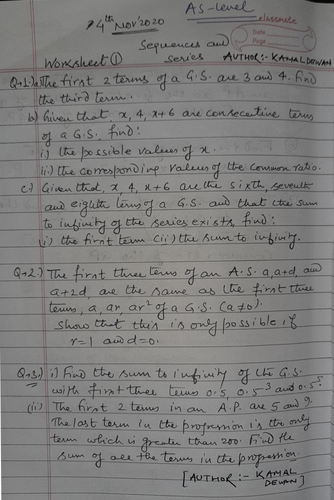 AS-level
4th Nov 2020
classmate
Date
Page
Sequences and
Series
Worksheet (1) AUTHOR:- KAMAL DEWAN
Q→1→) a) The first 2 terms of a G.S. are 3 and 4. Find
the third term.
b) Given that, x, 4, x+6 are consecutive terms
of a G.S. find:
i) the possible values of x
ii) the corresponding values of the common ratio.
c) Given that, x, 4, x+6 are the sixth, seventh
and eighth terms of a G.S. and that the sum
to infinity of the series exists, find:
(i) the first term (ii) the sum to infinity.
Q→2→) The first three terms of an A.S. a, a+d, and
a+2d, are the same as the first three
terms, a, ar, ar² of a G.S. (a≠0).
Show that this is only possible if
r=1 and d=0.
Q→3→) i) Find the sum to infinity of the G.S.
with first three terms 0.5, 0.5³ and 0.5⁵.
(ii) The first 2 terms in an A.P. are 5 and 9.
The last term in the progression is the only
term which is greater than 200. Find the
sum of all the terms in the progression.
[AUTHOR:- KAMAL
DEWAN]